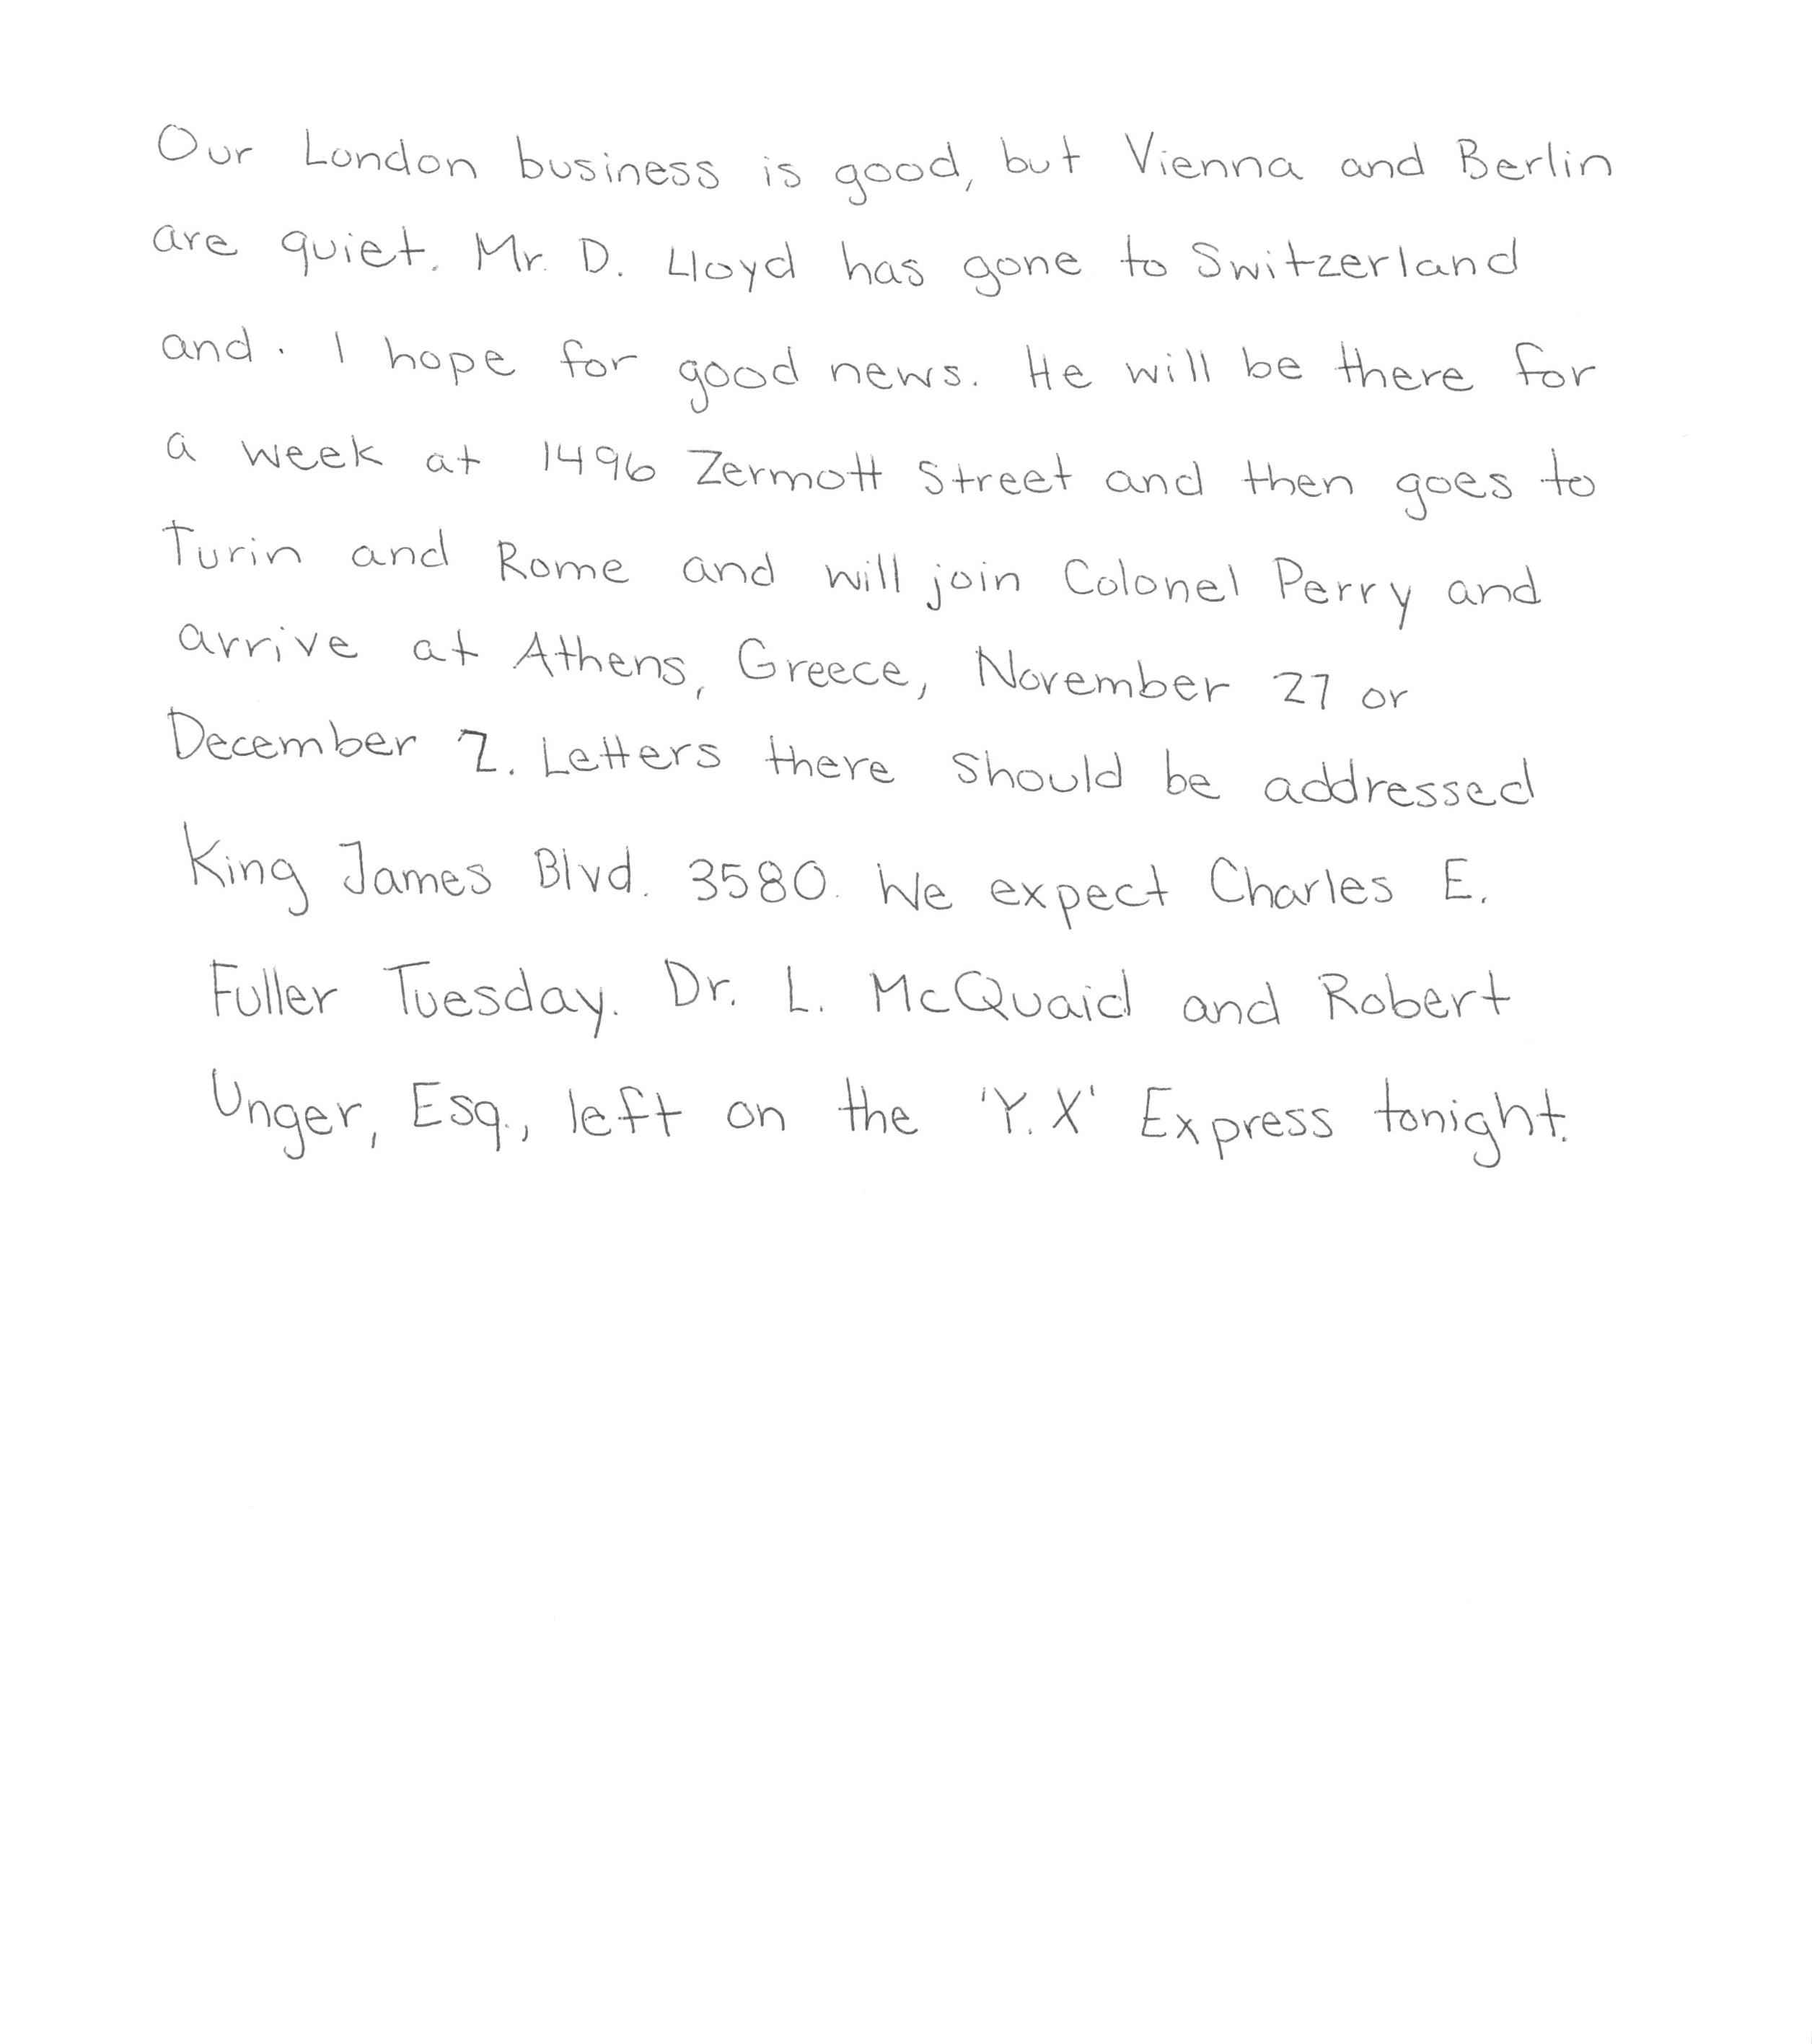 Our London business is good, but Vienna and Berlin
are quiet. Mr. D. Lloyd has gone to Switzerland
and. I hope for good news. He will be there for
a week at 1496 Zermott Street and then goes to
Turin and Rome and will join Colonel Perry and
arrive at Athens, Greece, November 27 or
December 2. Letters there should be addressed
King James Blvd. 3580. We expect Charles E.
Fuller Tuesday. Dr. L. McQuaid and Robert
Unger, Esq., left on the 'Y.X' Express tonight.